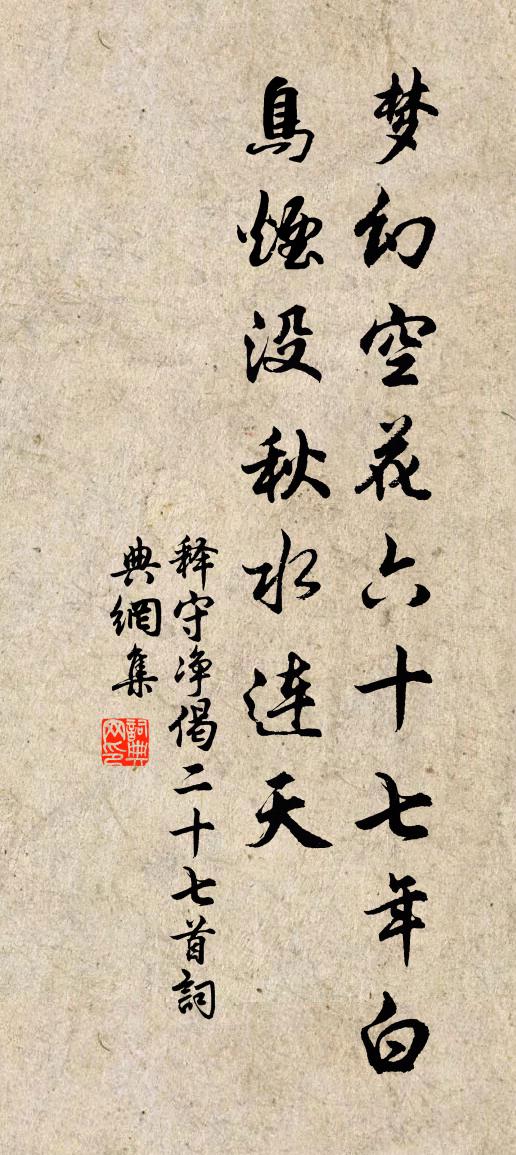 梦幻空花六十七年白
鳥煙没秋水連天
释守净偈二十七首詞
典網集
詞典
网印